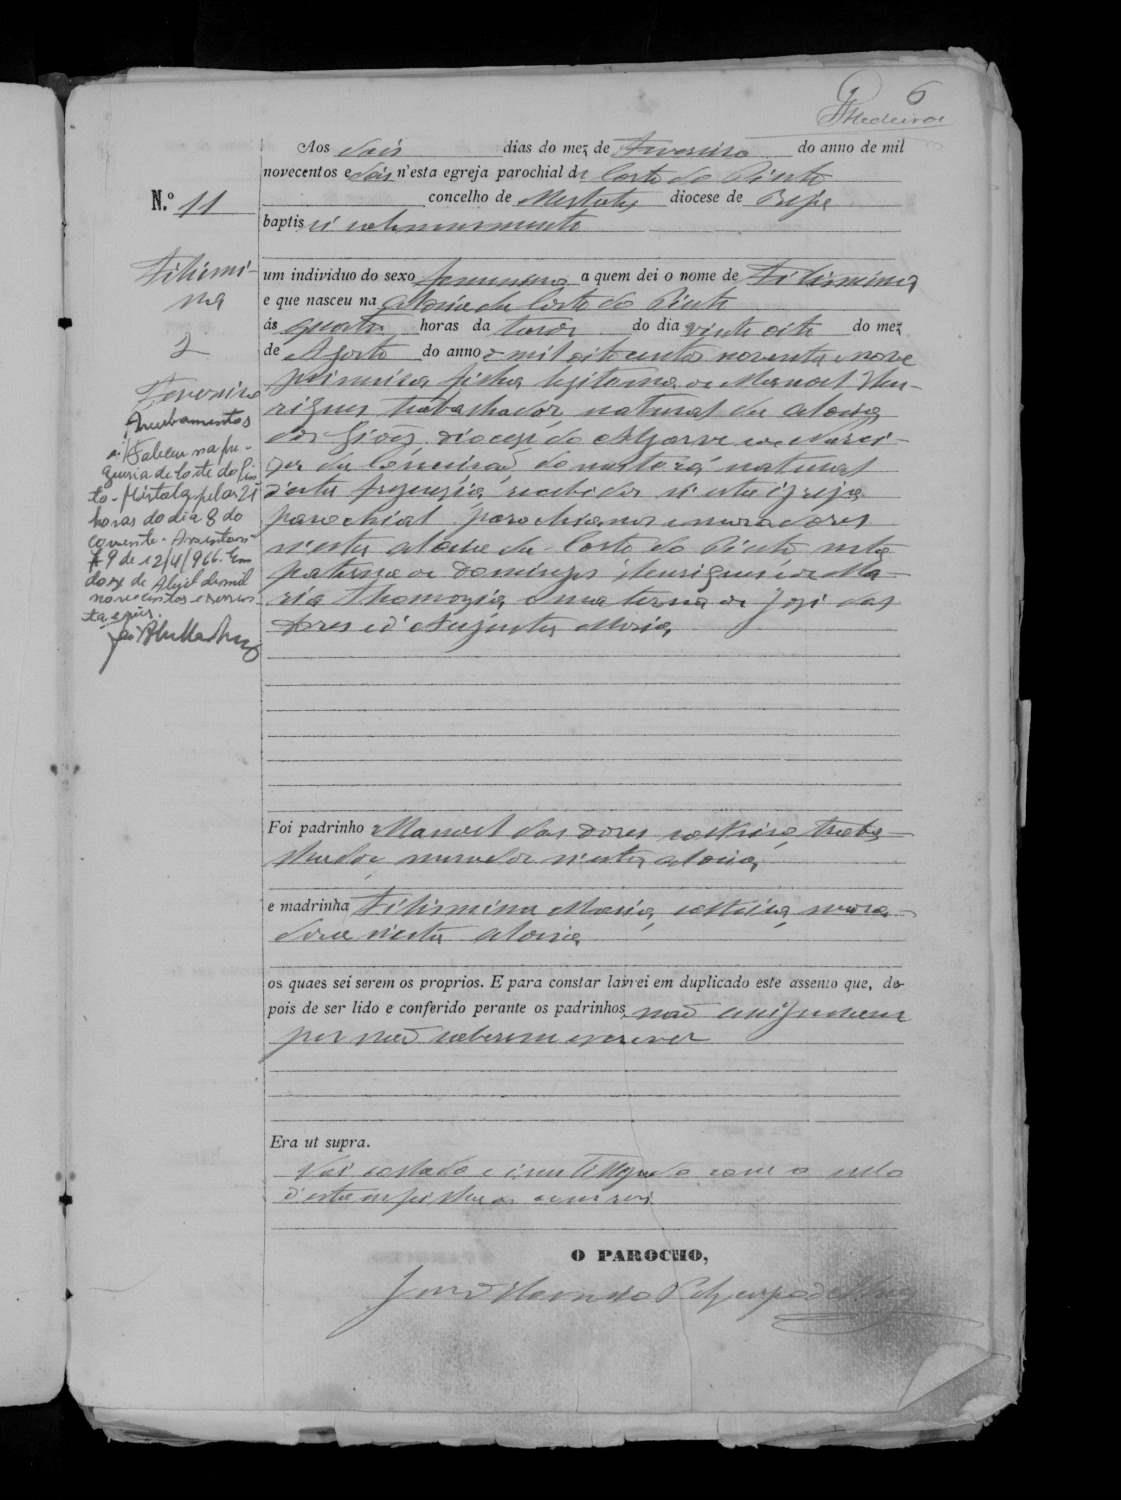 6
Medeiros
Aos dois dias do mez de Fevereiro do anno de mil
novecentos e dois n'esta egreja parochial de Corte do Pinto
concelho de Mertola diocese de Beja
N.º 11
baptisei solemnemente
Filismi-
na
2
Fevereiro
um individuo do sexo femenino a quem dei o nome de Filismina
e que nasceu na Aldeia da Corte do Pinto
ás quatro horas da tarde do dia vinte oito do mez
de Agosto do anno de mil oitocentos noventa e nove
primeira filha legitima de Manoel Hen-
riques trabalhador, natural da aldeia
dos Giões diocese do Algarve e de Narci-
za da Conceição domestica natural
d'esta freguezia recebidos n'esta igreja
parochial parochianos e moradores
n'esta aldeia da Corte do Pinto neta
paterna de Domingos Henriques e de Ma-
ria Thomazia e materna de José das
Dores e d'Augusta Maria,
Averbamentos
a) Faleceu na fre-
guesia de Corte do Pin-
to - Mértola pelas 21
horas do dia 8 do
corrente. Assento n.º
9 de 12/4/966. Em
doze de Abril de mil
novecentos e sessen-
ta e seis.
Foi padrinho Manoel das Dores solteiro, traba-
lhador, morador n'esta aldeia,
e madrinha Filismina Maria, solteira, mora-
dora n'esta aldeia
os quaes sei serem os proprios. E para constar lavrei em duplicado este assento que, de-
pois de ser lido e conferido perante os padrinhos, não assignaram
por não saberem escrever
Era ut supra.
Vai sellado e inutilisado com o sello
d'estampilha
O PAROCHO,